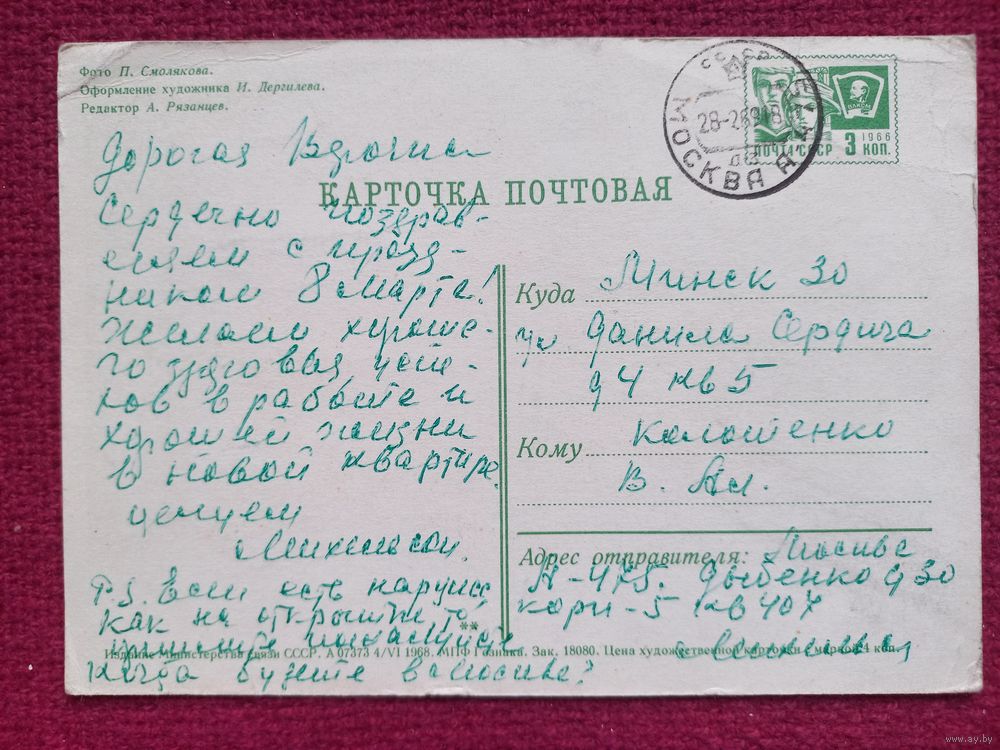 Фото П. Смолякова.
Оформление художника И. Дергилева.
Редактор А. Рязанцев.
СССР
МОСКВА
28-2
ПОЧТА СССР
1966
3 КОП.
ВЛКСМ
Дорогая
КАРТОЧКА ПОЧТОВАЯ
Сердечно поздрав-
ляем с празд-
ником 8 марта!
Желаем хороше-
го здоровья, успе-
хов в работе и
хорошей жизни
в новой квартире.
целуем
P.S. Если есть
как на открытке, то
когда будете в Москве?
Куда Минск 30
ул Данила Сердича
д 4 кв 5
Кому
В. Ал.
Адрес отправителя: Москва
А-475. Дыбенко д 30
корп-5 кв 407
**
Издание Министерства связи СССР. А 07373 4/VI 1968. МПФ Гознака. Зак. 18080. Цена художественной карточки с маркой 4 коп.
www.ay.by